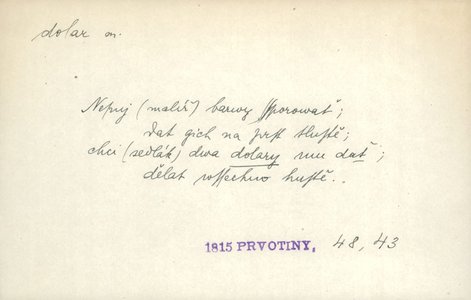 dolar m.
Nepuj (malíř) barwy ſſporowať;
dat gich na prſt tluſtě;
chci (sedlák) dwa dolary mu dať;
dělat wſſechno huſtě..
1815 PRVOTINY, 48, 43